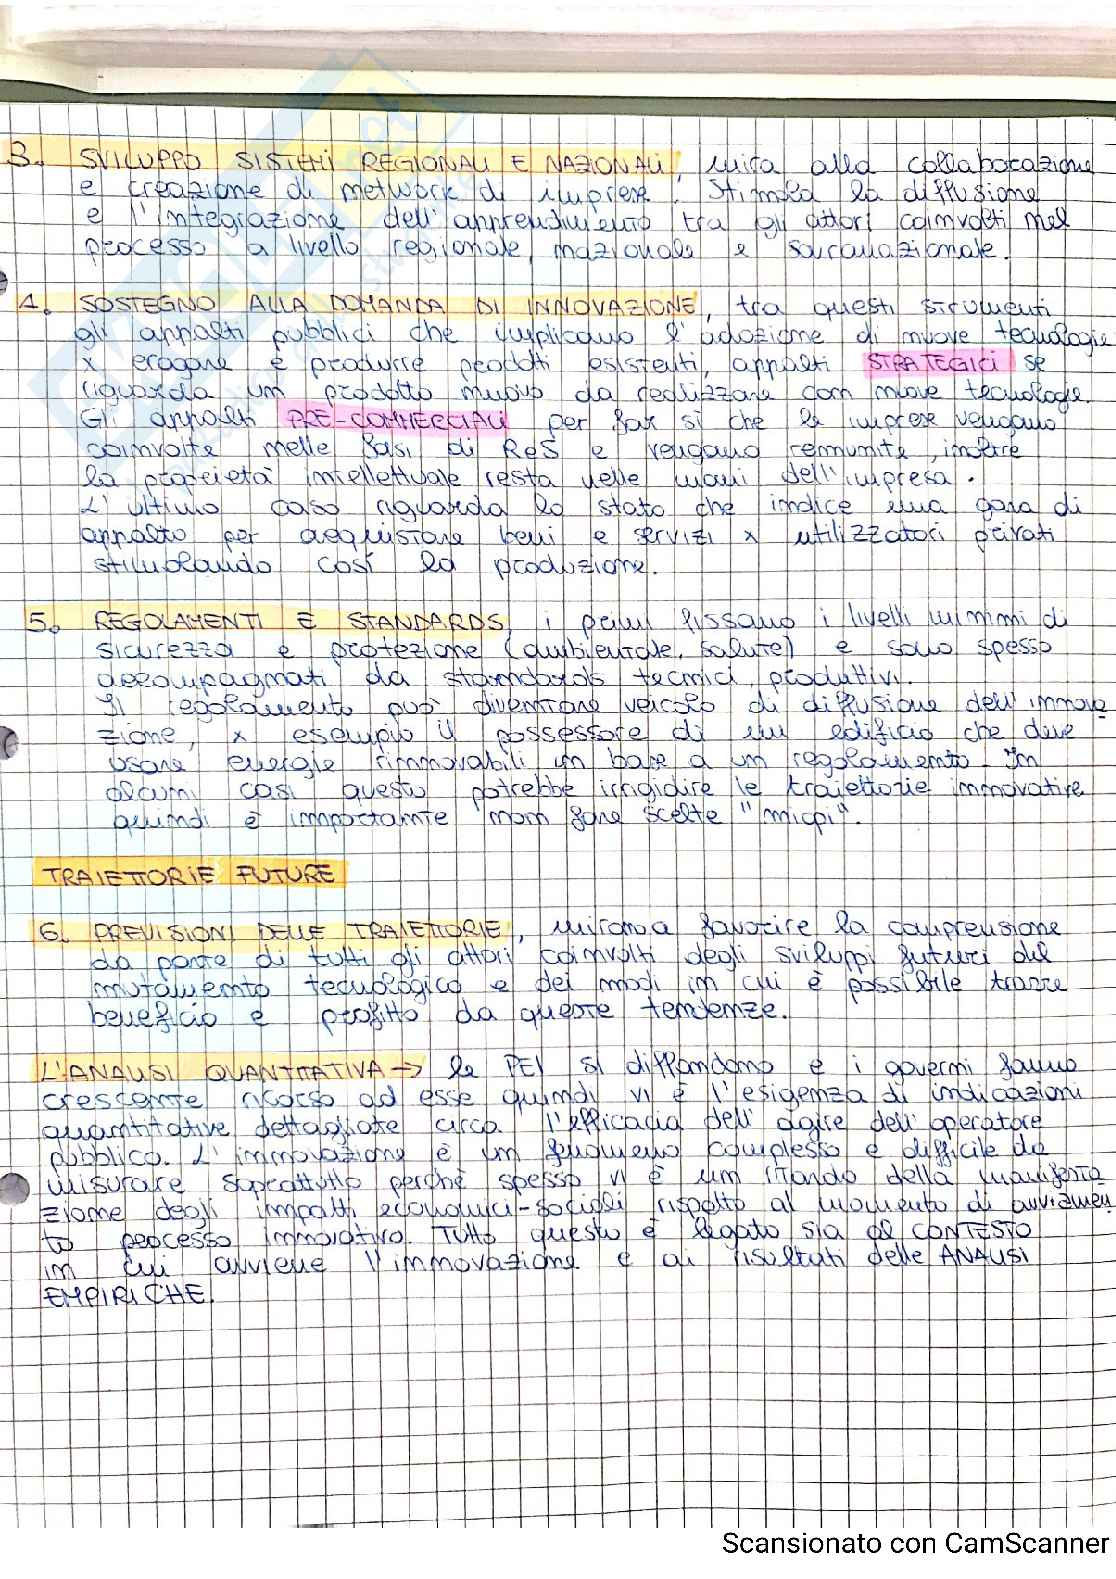 3. SVILUPPO SISTEMI REGIONALI E NAZIONALI, mira alla collaborazione
e creazione di network di imprese. Stimola la diffusione
e l'integrazione dell'apprendimento tra gli attori coinvolti nel
processo a livello regionale, nazionale e sovranazionale.
4. SOSTEGNO ALLA DOMANDA DI INNOVAZIONE, tra questi strumenti
gli appalti pubblici che implicano l'adozione di nuove tecnologie
x erogare e produrre prodotti esistenti, appalti STRATEGICI se
riguarda un prodotto nuovo da realizzare con nuove tecnologie.
Gli appalti PRE-COMMERCIALI per far sì che le imprese vengano
coinvolte nelle fasi di ReS e vengano remunite, inoltre
la proprietà intellettuale resta nelle mani dell'impresa.
L'ultimo caso riguarda lo stato che indice una gara di
appalto per acquistare beni e servizi x utilizzatori privati
stimolando così la produzione.
5. REGOLAMENTI E STANDARDS, i primi fissano i livelli minimi di
sicurezza e protezione (ambientale, salute) e sono spesso
accompagnati da standards tecnici, produttivi.
Il regolamento può diventare veicolo di diffusione dell'innova
zione, x esempio il possessore di un edificio che deve
usare energie rinnovabili in base a un regolamento. In
alcuni casi questo potrebbe irrigidire le traiettorie innovative
quindi è importante non fare scelte "miopi".
TRAIETTORIE FUTURE
6. PREVISIONI DELLE TRAIETTORIE, mirano a favorire la comprensione
da parte di tutti gli attori coinvolti degli sviluppi futuri del
mutamento tecnologico e dei modi in cui è possibile trarre
beneficio e profitto da queste tendenze.
L'ANALISI QUANTITATIVA → le PEI si diffondono e i governi fanno
crescente ricorso ad esse quindi vi è l'esigenza di indicazioni
quantitative dettagliate circa l'efficacia dell'agire dell'operatore
pubblico. L'innovazione è un fenomeno complesso e difficile da
misurare soprattutto perchè spesso vi è un ritardo della manifesta
zione degli impatti economici-sociali rispetto al momento di avviamen
to processo innovativo. Tutto questo è legato sia al CONTESTO
in cui avviene l'innovazione e ai risultati delle ANALISI
EMPIRICHE.
Scansionato con CamScanner